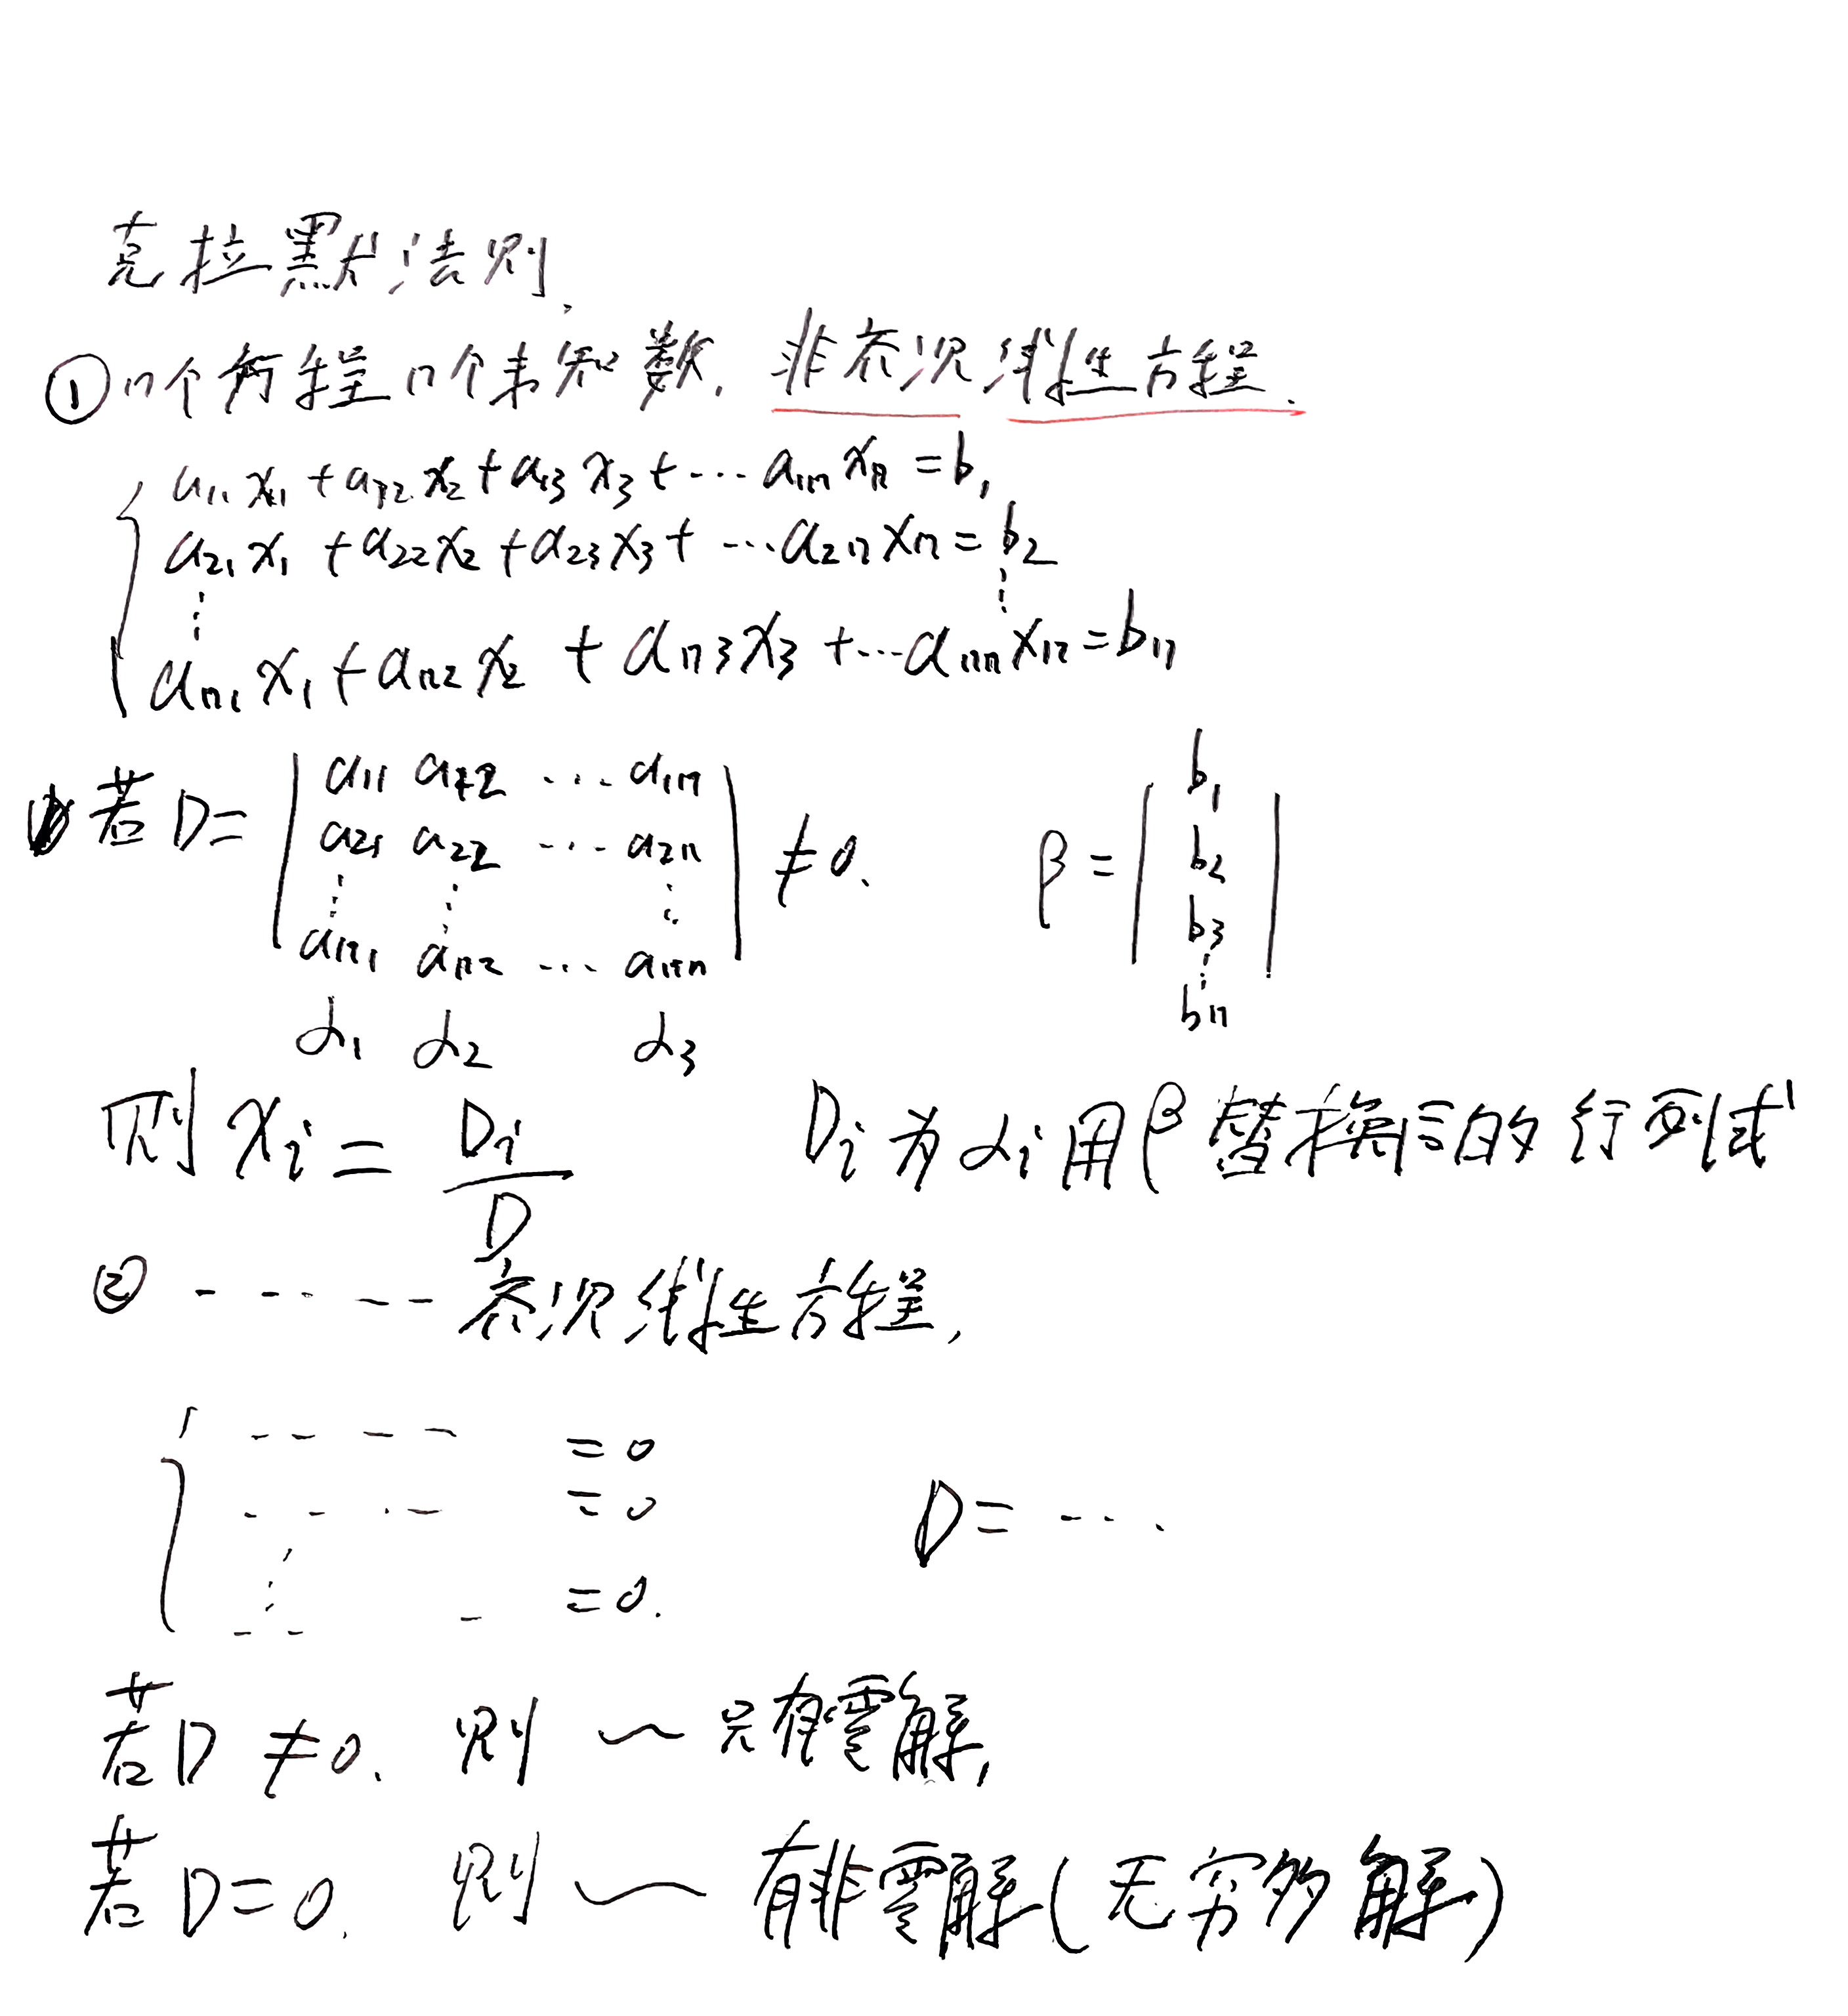 克拉默法则.
①n个方程n个未知数. 非齐次线性方程.
a11 x1 + a12 x2 + a13 x3 + ... a1n xn = b1
a21 x1 + a22 x2 + a23 x3 + ... a2n xn = b2
⋮ ⋮
an1 x1 + an2 x2 + an3 x3 + ... ann xn = bn
若 D= | a11 a12 ... a1n | ≠0. β = | b1 |
a21 a22 ... a2n b2
⋮ ⋮ ⋮ b3
an1 an2 ... ann ⋮
α1 α2 α3 bn
则 xi = Di/D Di 为 αi 用 β 替换后的行列式
② ------ 齐次线性方程.
---- =0
---- =0 D= ...
⋮
-- - =0.
若 D ≠0. 则 ~ 只有零解.
若 D=0. 则 ~ 有非零解(无穷多解)